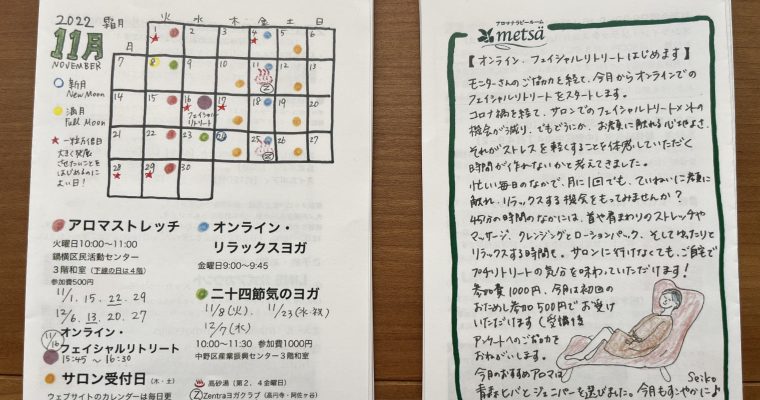 2022 霜月
11月
NOVEMBER
火 水 木 金 土 日
1 2 3 4 5 6
7 8 9 10 11 12 13
14 15 16 17 18 19 20
フェイシャル
リトリート
21 22 23 24 25 26 27
28 29 30
新月
New Moon
満月
Full Moon
一粒万倍日
大きく発展
させたいことを
はじめるのに
よい日!
アロマストレッチ
火曜日10:00〜11:00
鍋横区民活動センター
3階和室(下線の日は4階)
参加費500円
11/1. 15. 22. 29
12/6. 13. 20. 27
11/16
オンライン・
フェイシャルリトリート
15:45 〜 16:30
サロン受付日(木・土)
ウェブサイトのカレンダーは毎日更
オンライン・
リラックスヨガ
金曜日9:00〜9:45
二十四節気のヨガ
11/8(火). 11/23(水・祝)
12/7(水)
10:00〜11:30 参加費1000円
中野区産業振興センター3階和室
高砂湯(第2、4金曜日)
Z Zentraヨガクラブ(高円寺・阿佐ヶ谷)
アロマテラピールーム
metsä
【オンライン・フェイシャルリトリートはじめます】
モニターさんのご協力を経て、今月からオンラインでの
フェイシャルリトリートをスタートします。
コロナ禍を経て、サロンでのフェイシャルトリートメントの
機会が減り、でもどうにか、お顔に触れる心地よさ、
それがストレスを軽くすることを体感していただく
時間が作れないかと考えてきました。
忙しい毎日のなかで、月に1回でも、ていねいに顔に
触れ、リラックスする機会をもってみませんか?
45分の時間のなかには、首や肩まわりのストレッチや
マッサージ、クレンジングとローションパック、そしてゆったりと
リラックスする時間も。サロンに行けなくても、ご自宅で
プチリトリートの気分を味わっていただけます!
参加費1000円、今月は初回の
おためし参加500円でお受け
いただけます(受講後
アンケートへのご協力を
おねがいします。
今月のおすすめアロマは
青森ヒバとジュニパーを選びました。今月もすこやかに♪
Seiko